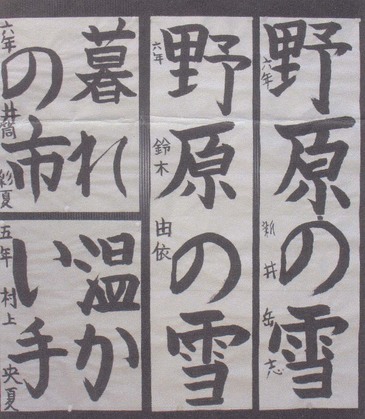 野原の雪
六年 新井 岳志
野原の雪
六年 鈴木 由依
暮れ
の市
六年 井筒 彩夏
温か
い手
五年 村上 央夏